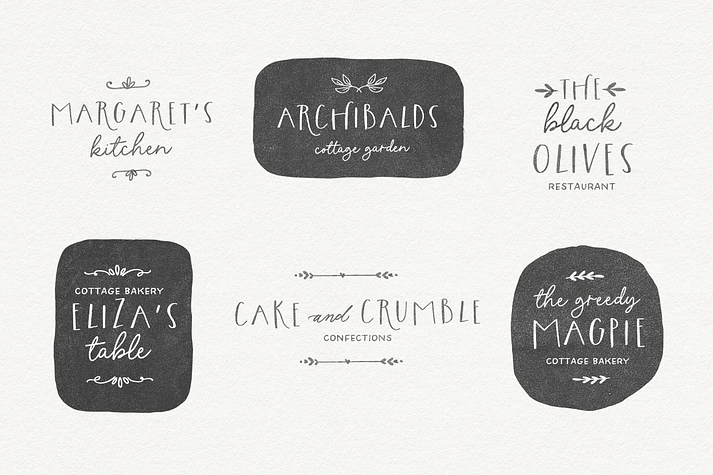 MARGARET'S
kitchen
ARCHIBALDS
cottage garden
THE
black
OLIVES
RESTAURANT
COTTAGE BAKERY
ELIZA'S
table
CAKE and CRUMBLE
CONFECTIONS
the greedy
MAGPIE
COTTAGE BAKERY